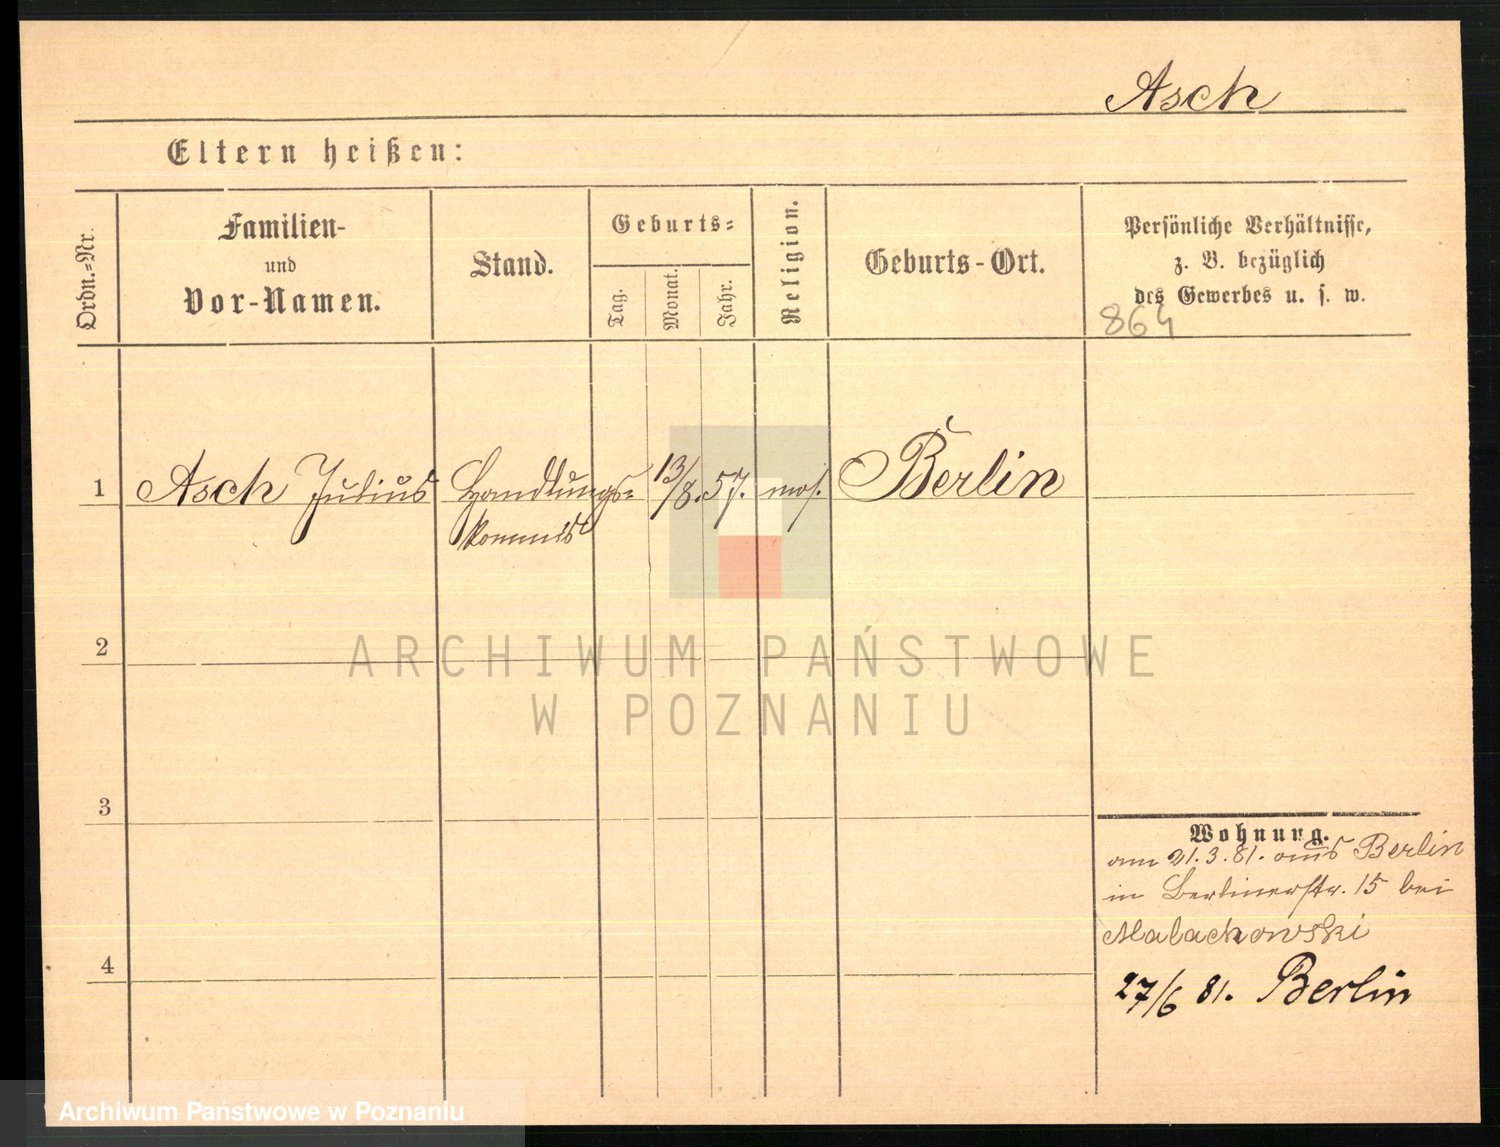 Asch
Eltern heißen:
Ordn.-Nr.
Familien-
und
Vor-Namen.
Stand.
Geburts-
Tag.
Monat.
Jahr.
Religion.
Geburts-Ort.
Persönliche Verhältnisse,
z. B. bezüglich
des Gewerbes u. s. w.
864
1 Asch Julius Handlungs- 13/8. 57. mos. Berlin
kommis
2
3
4
Wohnung.
am 21.3.81. aus Berlin
in Berlinerstr. 15 bei
Malachowski
27/6 81. Berlin
ARCHIWUM PAŃSTWOWE
W POZNANIU
Archiwum Państwowe w Poznaniu